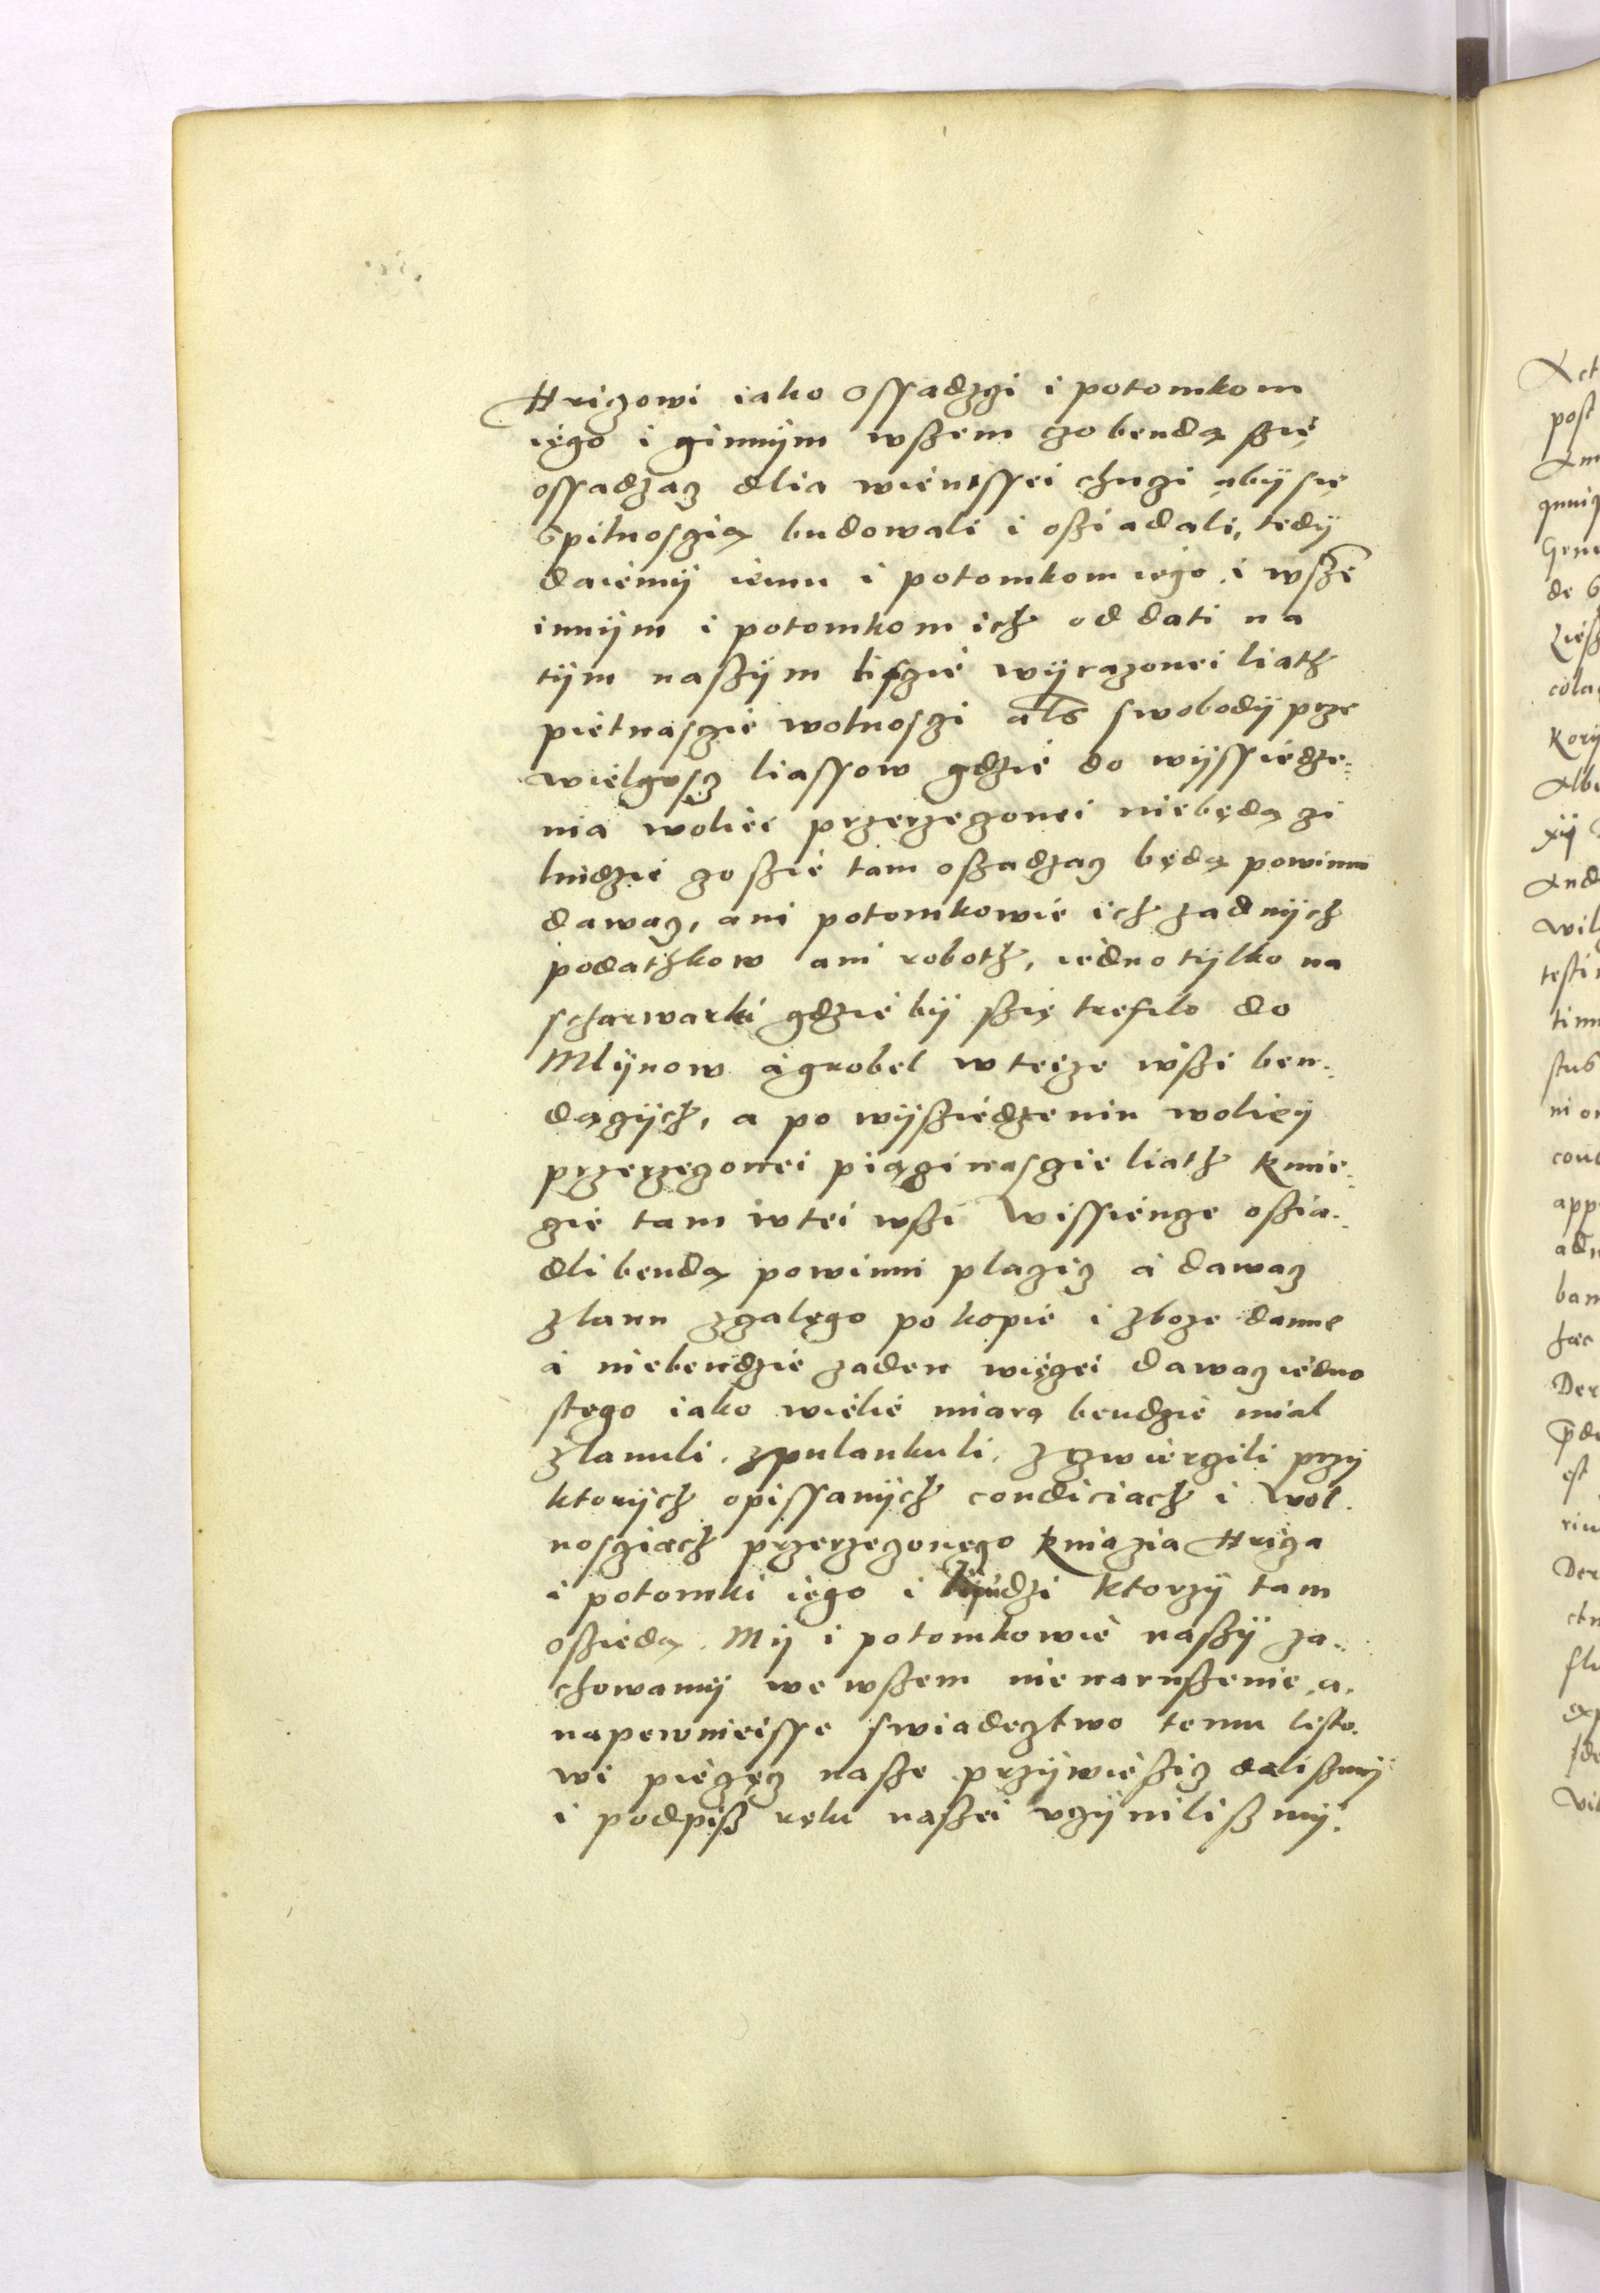 Hriczowi iako ossadzgi i potomkom
iego i ginnÿm wszem czo bendą szię
ossadzacz dlia wientssei chuczi abÿ się
s pilnosczią budowali i osziadali, tedÿ
daiemÿ iemu i potomkom iego i wszē
innÿm i potomkom ich od dati na
tÿm naszÿm lisczie wÿrazonei liath
pietnasczie wolnosczi als swobodÿ prze
wielgosz liassow gdzie do wÿssiedze-
nia woliei przerzeczonei niebędą czi
ludzie czo szie tam oszadzacz będą powinni
dawacz, ani potomkowie ich zadnÿch
podathkow ani roboth, iedno tÿlko na
scharwarki gdzie bÿ szię trefilo do
Mlÿnow a grobel w teize wszi ben-
dączÿch, a po wÿsziedzeniu woliey
przerzeczonei piączinasczie liath kmie-
czie tam w tei wszi Wissiencze oszia-
dli bendą powinni placzicz a dawacz
z lanu z czalego po kopie i zboze danne
a niebendzie zaden więczei dawacz iedno
s tego iako wielie miarą bendzie mial
z lanuli, z pulankuli, z czwierczili przÿ
ktorÿch opissanÿch condiciach i wol-
nosciach przerzeczonego kniazia Hricza
i potomki iego i liudzi ktorzÿ tam
osziedą. Mÿ i potomkowie naszÿ za-
chowamÿ we wszem nienaruszenie, a
napewnieisse swiadecztwo temu listo-
wi pieczęcz nasze przÿwieszicz daliszmÿ
i podpisz ręki naszei uczÿniliszmÿ.
Act
post